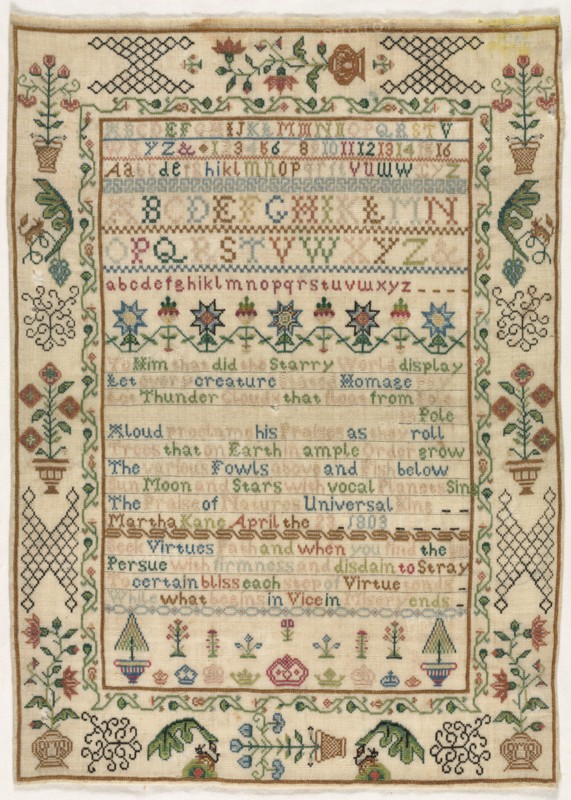 ABCDEFGHIJKLMNOPQRSTV
WXYZ& 1 2 3 4 5 6 7 8 9 10 11 12 13 14 15 16
Aabcdefghiklmnop vuwwxyz
ABCDEFGHIKLMN
OPQRSTVWXYZ&
abcdefghiklmnopqrstuvwxyz
To Him that did the Starry World display
Let every creature Homage pay
Let Thunder Clouds that float from Pole
to Pole
Aloud proclaim his Praises as they roll
Trees that on Earth in ample Order grow
The various Fowls above and Fish below
Sun Moon and Stars with vocal Planets Sing
The Praise of Natures Universal King
Martha Kane April the 23 1803
Seek Virtues Path and when you find the
Persue with firmness and disdain to Stray
To certain bliss each step of Virtue tends
While what begins in Vice in ends